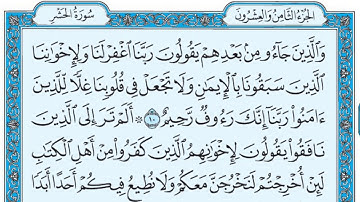 الجزء الثامن والعشرون سورة الحشر
وَالَّذِينَ جَاءُو مِنْ بَعْدِهِمْ يَقُولُونَ رَبَّنَا اغْفِرْ لَنَا وَلِإِخْوَانِنَا
الَّذِينَ سَبَقُونَا بِالْإِيمَانِ وَلَا تَجْعَلْ فِي قُلُوبِنَا غِلًّا لِلَّذِينَ
ءَامَنُوا رَبَّنَا إِنَّكَ رَءُوفٌ رَحِيمٌ ١٠ ۞ أَلَمْ تَرَ إِلَى الَّذِينَ
نَافَقُوا يَقُولُونَ لِإِخْوَانِهِمُ الَّذِينَ كَفَرُوا مِنْ أَهْلِ الْكِتَابِ
لَئِنْ أُخْرِجْتُمْ لَنَخْرُجَنَّ مَعَكُمْ وَلَا نُطِيعُ فِيكُمْ أَحَدًا أَبَدًا